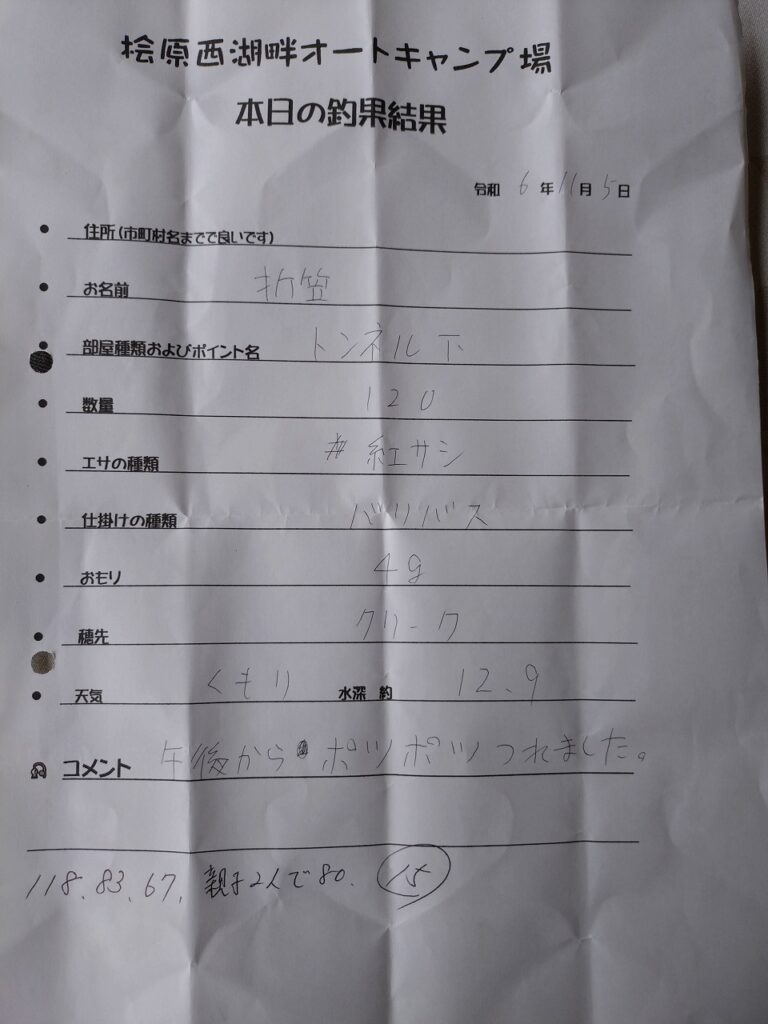 桧原西湖畔オートキャンプ場
本日の釣果結果
令和 6 年 11 月 5 日
住所(市町村名までで良いです)
お名前 折笠
部屋種類およびポイント名 トンネル下
数量 120
エサの種類 # 紅サシ
仕掛けの種類 バリバス
おもり 4g
穂先 クリーク
天気 くもり 水深 約 12.9
コメント 午後からポツポツつれました。
118. 83. 67. 親子2人で80. 15